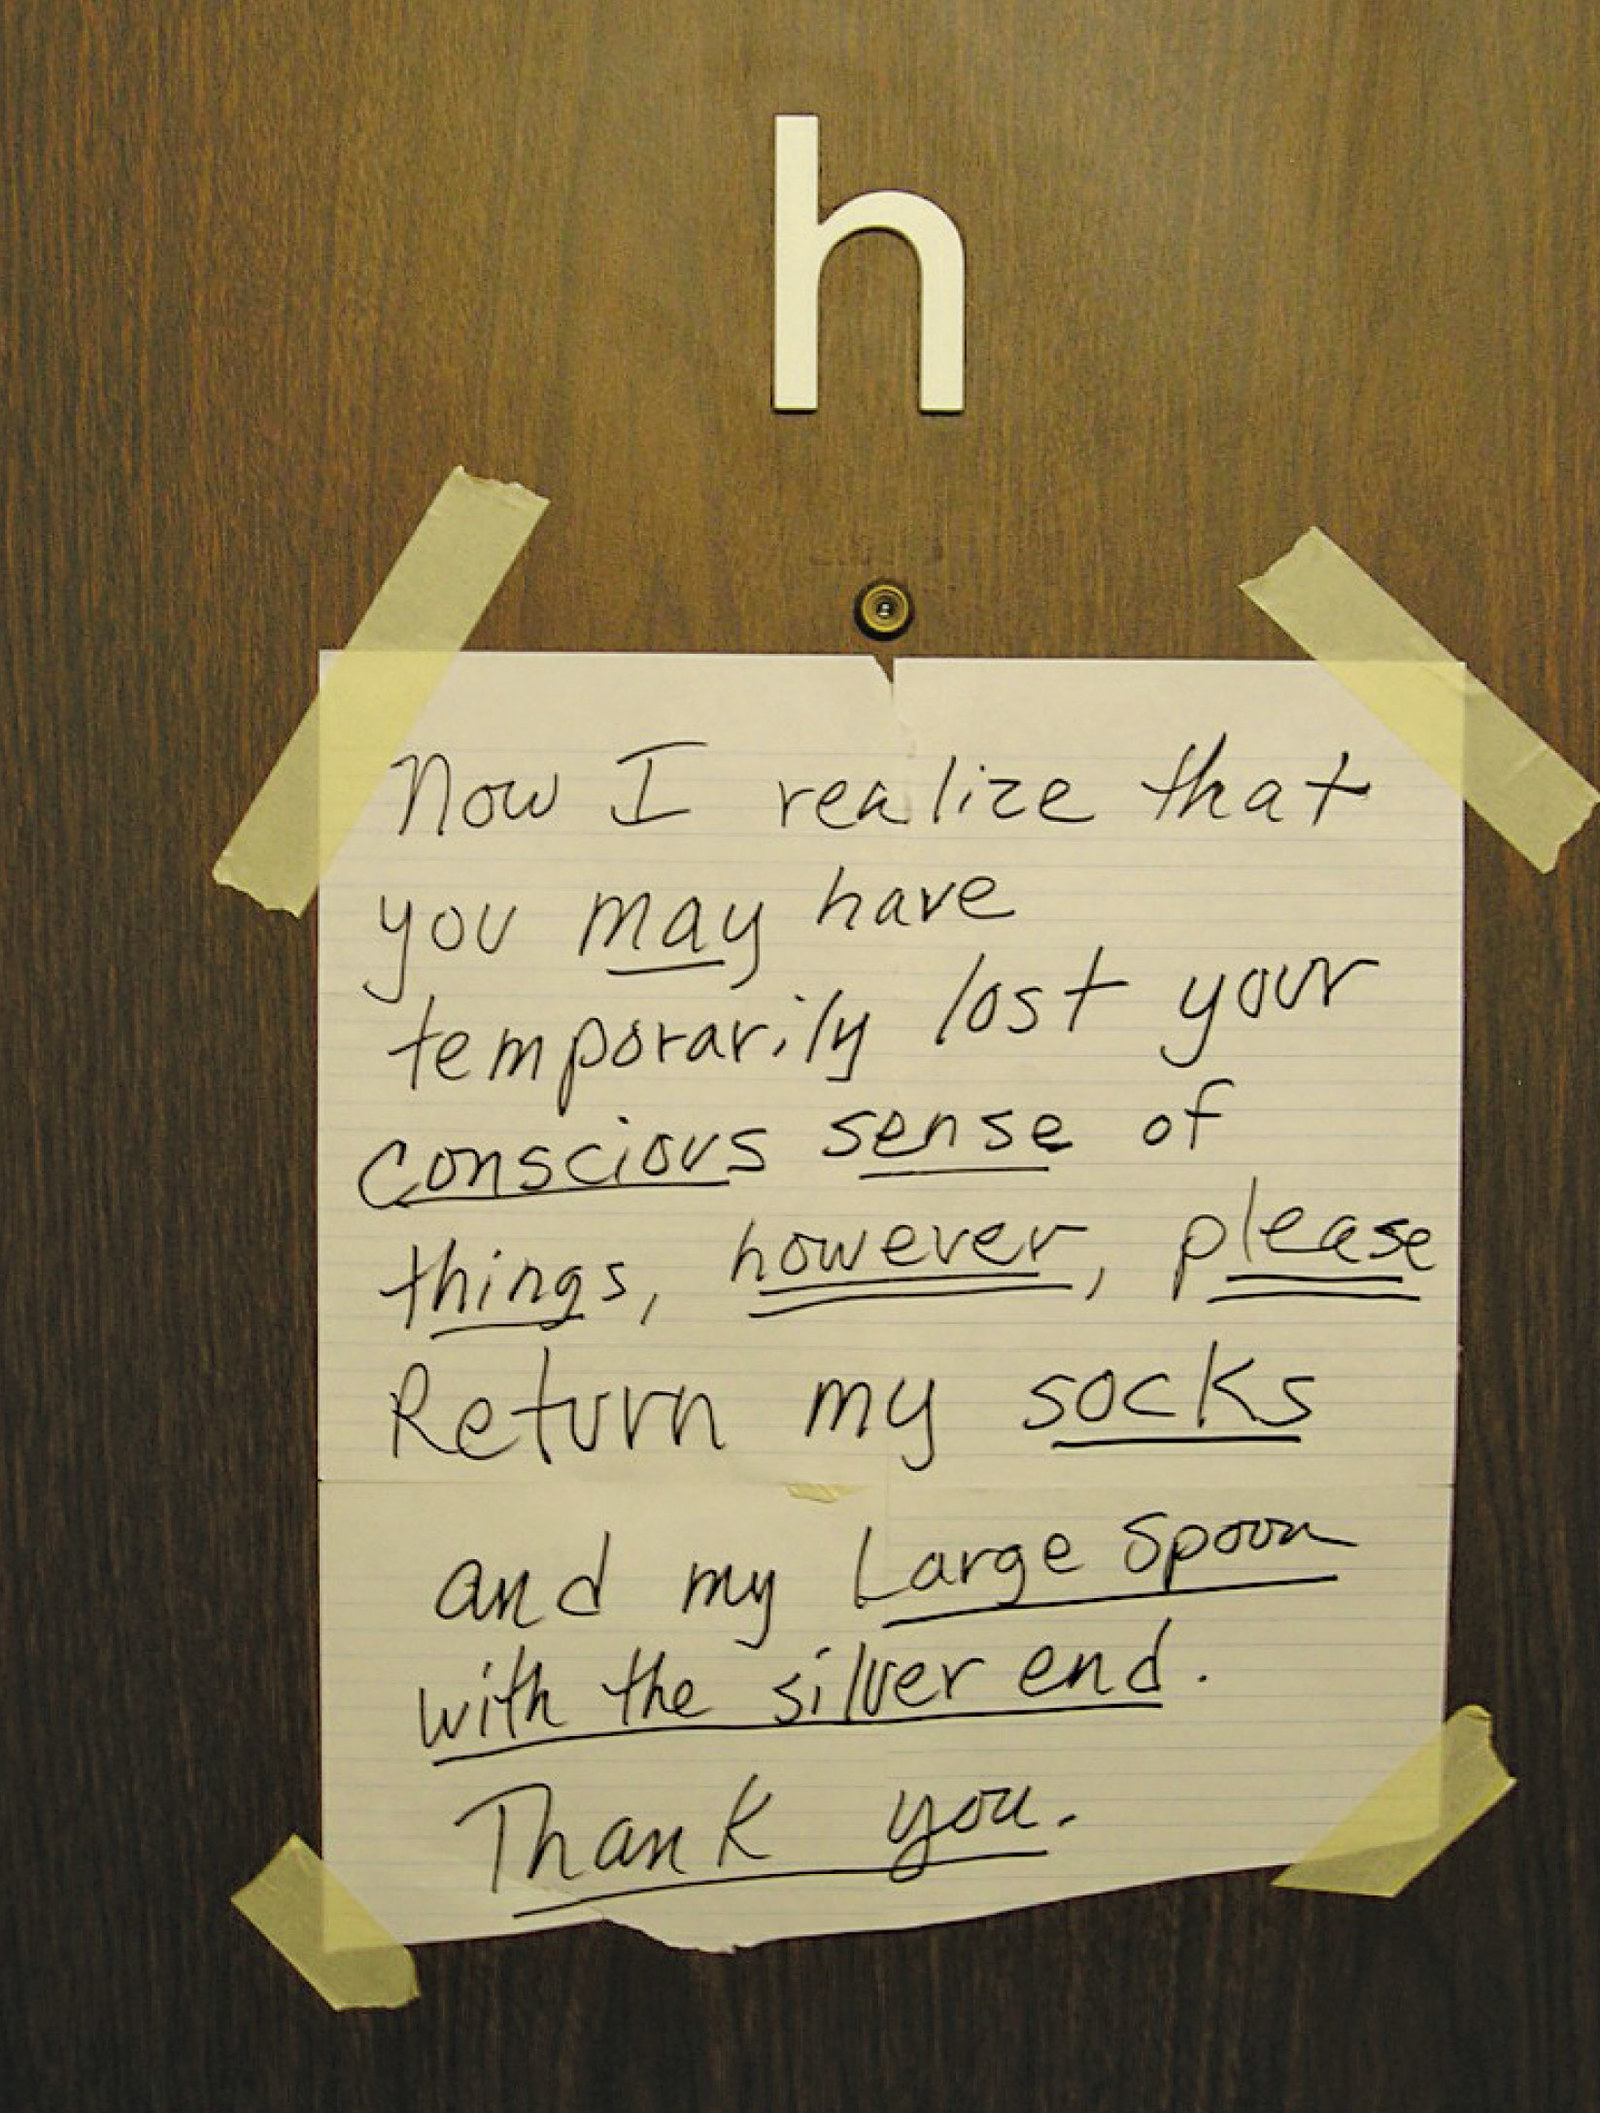 h
Now I realize that
you may have
temporarily lost your
conscious sense of
things, however, please
Return my socks
and my Large Spoon
with the silver end.
Thank you.